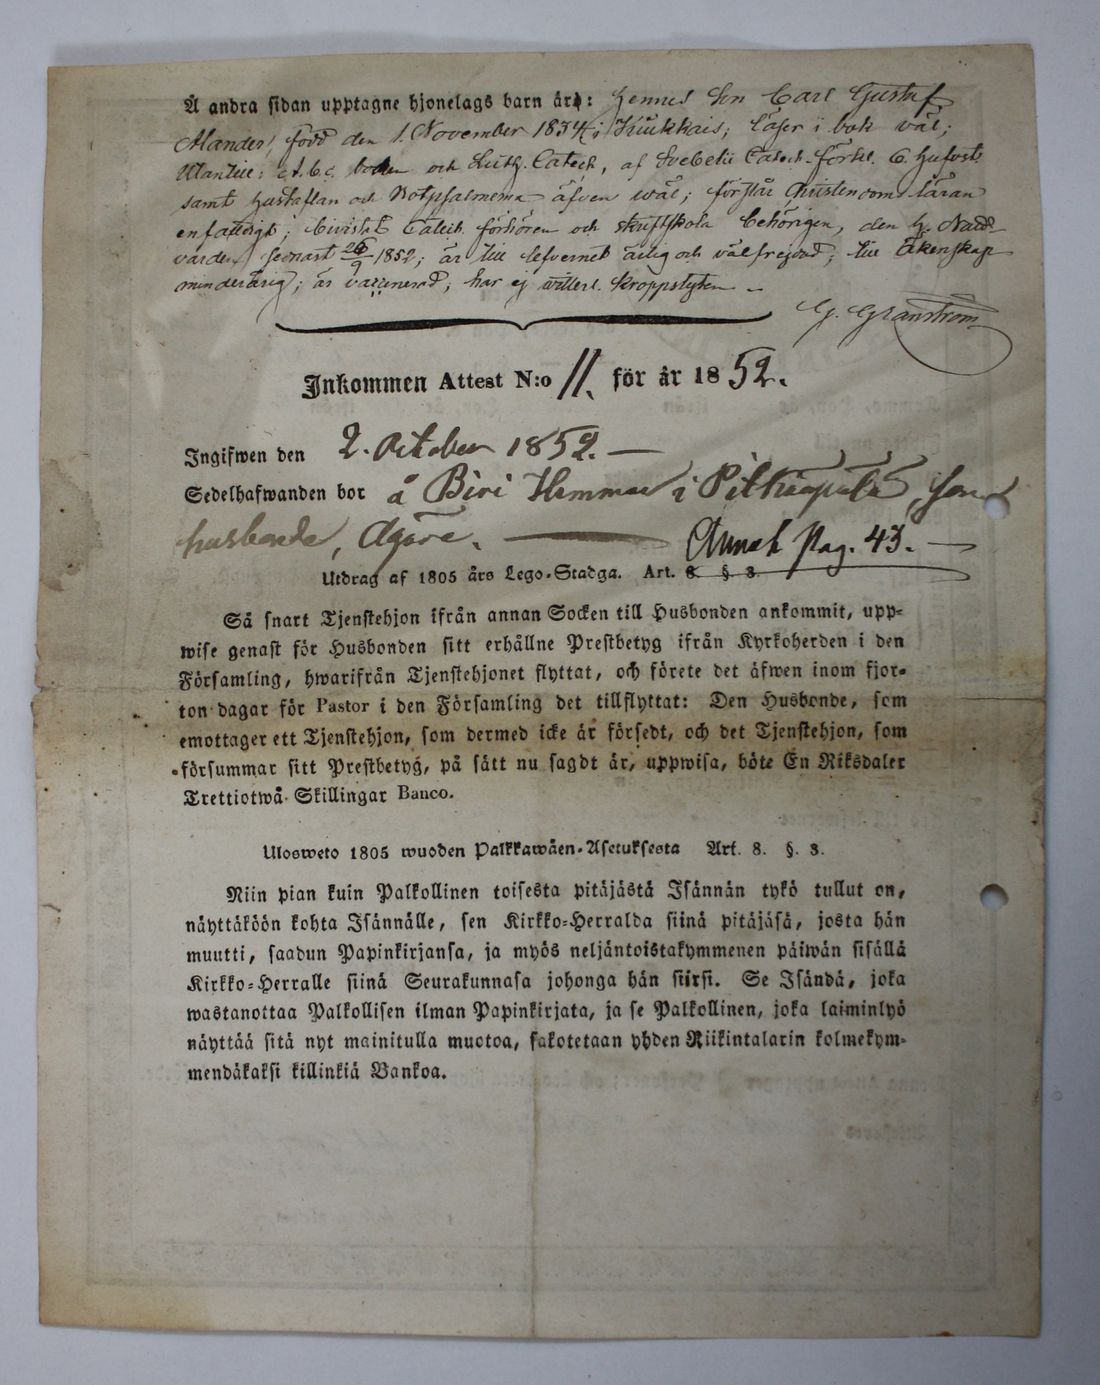 Å andra sidan upptagne hjonelags barn är: Hennes Son Carl Gustaf
Alander, född den 1. November 1834 i Kiukkais; läser i bok väl;
utantill: A.b.c. boken och Luth. Catech, af Svebelii Catech. förkl. 6. Hufvst.
samt Hustaflan och Botpsalmerna äfven wäl; förstår Christendoms läran
enfaldigt; bivistat Catech. förhören och skriftskola behörigen, den H. Nattv
varden senast 26/9 1852; är till lefvernet ärlig och välfrejdad; till Äktenskap
minderårig; är vaccinerad; har ej kroppslyten
G. Granström
Inkommen Attest N:o 11. för år 1852.
Ingifwen den 2. October 1852. —
Sedelhafwanden bor å Biri Hemman i
husbonde, Ågare. — Annat Pag. 43. —
Utdrag af 1805 års Lego-Stadga. Art. 8. § 3.
Så snart Tjenstehjon ifrån annan Socken till Husbonden ankommit, upp-
wise genast för Husbonden sitt erhållne Prestbetyg ifrån Kyrkoherden i den
Församling, hwarifrån Tjenstehjonet flyttat, och förete det äfwen inom fjor-
ton dagar för Pastor i den Församling det tillflyttat: Den Husbonde, som
emottager ett Tjenstehjon, som dermed icke är försedt, och det Tjenstehjon, som
försummar sitt Prestbetyg, på sätt nu sagdt är, uppwisa, böte En Riksdaler
Trettiotwå Skillingar Banco.
Ulosweto 1805 wuoden Palkkawäen-Asetuksesta Art. 8. §. 3.
Niin pian kuin Palkollinen toisesta pitäjästä Isännän tykö tullut on,
näyttäköön kohta Isännälle, sen Kirkko-Herralda siinä pitäjäsä, josta hän
muutti, saadun Papinkirjansa, ja myös neljäntoistakymmenen päiwän sisällä
Kirkko-Herralle siinä Seurakunnasa johonga hän siirsi. Se Isändä, joka
wastanottaa Palkollisen ilman Papinkirjata, ja se Palkollinen, joka laiminlyö
näyttää sitä nyt mainitulla muotoa, sakotetaan yhden Riikintalarin kolmekym-
mendäkaksi killinkiä Bankoa.